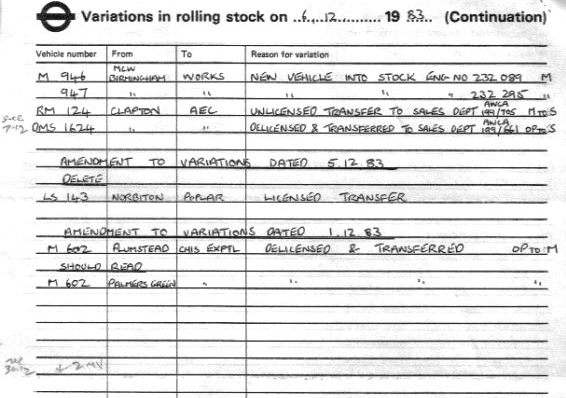 Variations in rolling stock on ..6...12........... 19 83.. (Continuation)
Vehicle number From To Reason for variation
M 946 MCW BIRMINGHAM WORKS NEW VEHICLE INTO STOCK ENG NO 232 089 M
947 " " " " 232 295 "
RM 124 CLAPTON AEC UNLICENSED TRANSFER TO SALES DEPT AWCA 199/705 M to S
7-12 DMS 1624 " " DELICENSED & TRANSFERRED TO SALES DEPT AWCA 199/661 OP to S
AMENDMENT TO VARIATIONS DATED 5.12.83
DELETE
LS 143 NORBITON POPLAR LICENSED TRANSFER
AMENDMENT TO VARIATIONS DATED 1.12.83
M 602 PLUMSTEAD CHIS EXPTL DELICENSED & TRANSFERRED OP to M
SHOULD READ
M 602 PALMERS GREEN " " " "
↓ 2 MV